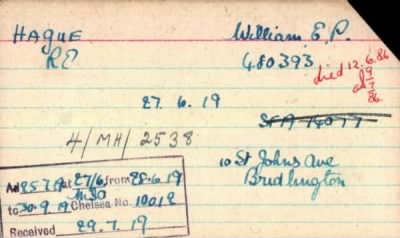 HAGUE William E. P.
RE 480393
died 12.6.86
9/7/86.
27.6.19
4/MH/2538
10 St Johns Ave
Bridlington
Ad 25.7.19 at 27/6, from 28.6.19
to 30.9.19 Chelsea No.
Received 29.7.19